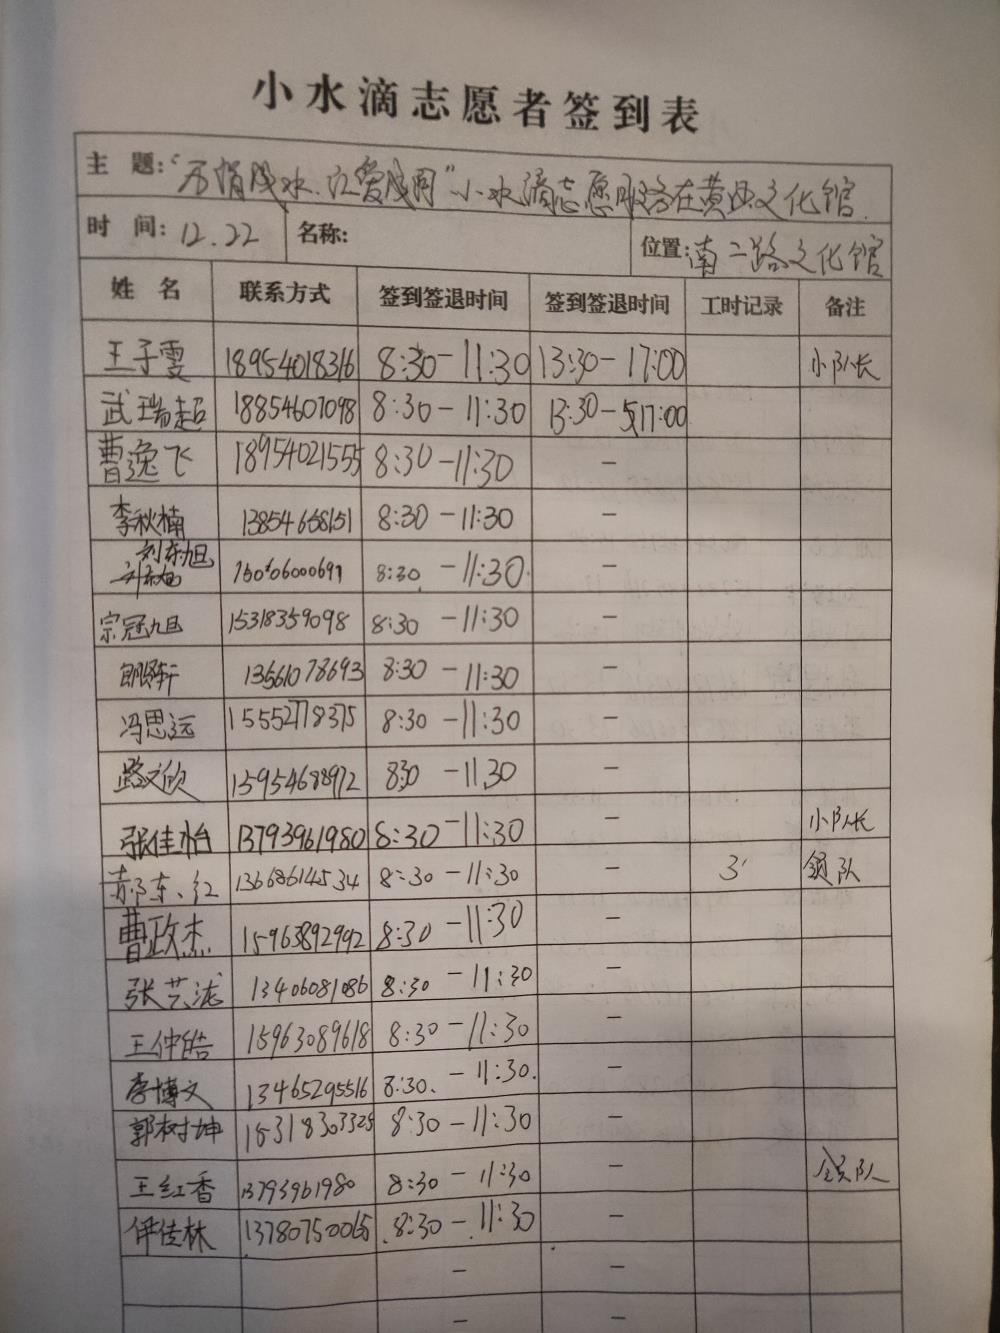 小水滴志愿者签到表
主 题:"节俏浅水、江爱浅网"小水滴志愿服务在黄县文化馆.
时 间: 12.22 名称: 位置: 南二路文化馆
姓 名 联系方式 签到签退时间 签到签退时间 工时记录 备注
王子雯 18954018316 8:30-11:30 13:30-17:00 小队长
武瑞超 18854607098 8:30-11:30 13:30-17:00
曹逸飞 18954021555 8:30-11:30 -
李秋楠 13854658151 8:30-11:30 -
刘东旭 8:30 -11:30 -
宗冠旭 15318359098 8:30 -11:30 -
郎贤轩 13561078693 8:30 -11:30 -
冯思远 15552778375 8:30 -11:30 -
路文欣 15954688972 830 -11.30 -
张佳怡 13793961980 8:30-11:30 - 小队长
郝东红 13668614534 8:30-11:30 - 3 领队
曹政杰 15963892992 8:30-11:30 -
张艺泷 13406081086 8:30 -11:30 -
王仲皓 15963089618 8:30-11:30 -
李博文 13465295516 8:30. -11:30. -
郭树坤 15318303325 8:30-11:30 -
王红香 13793961980 8:30-11:30 - 领队
伊佳林 13780750065 8:30-11:30 -
- -
- -